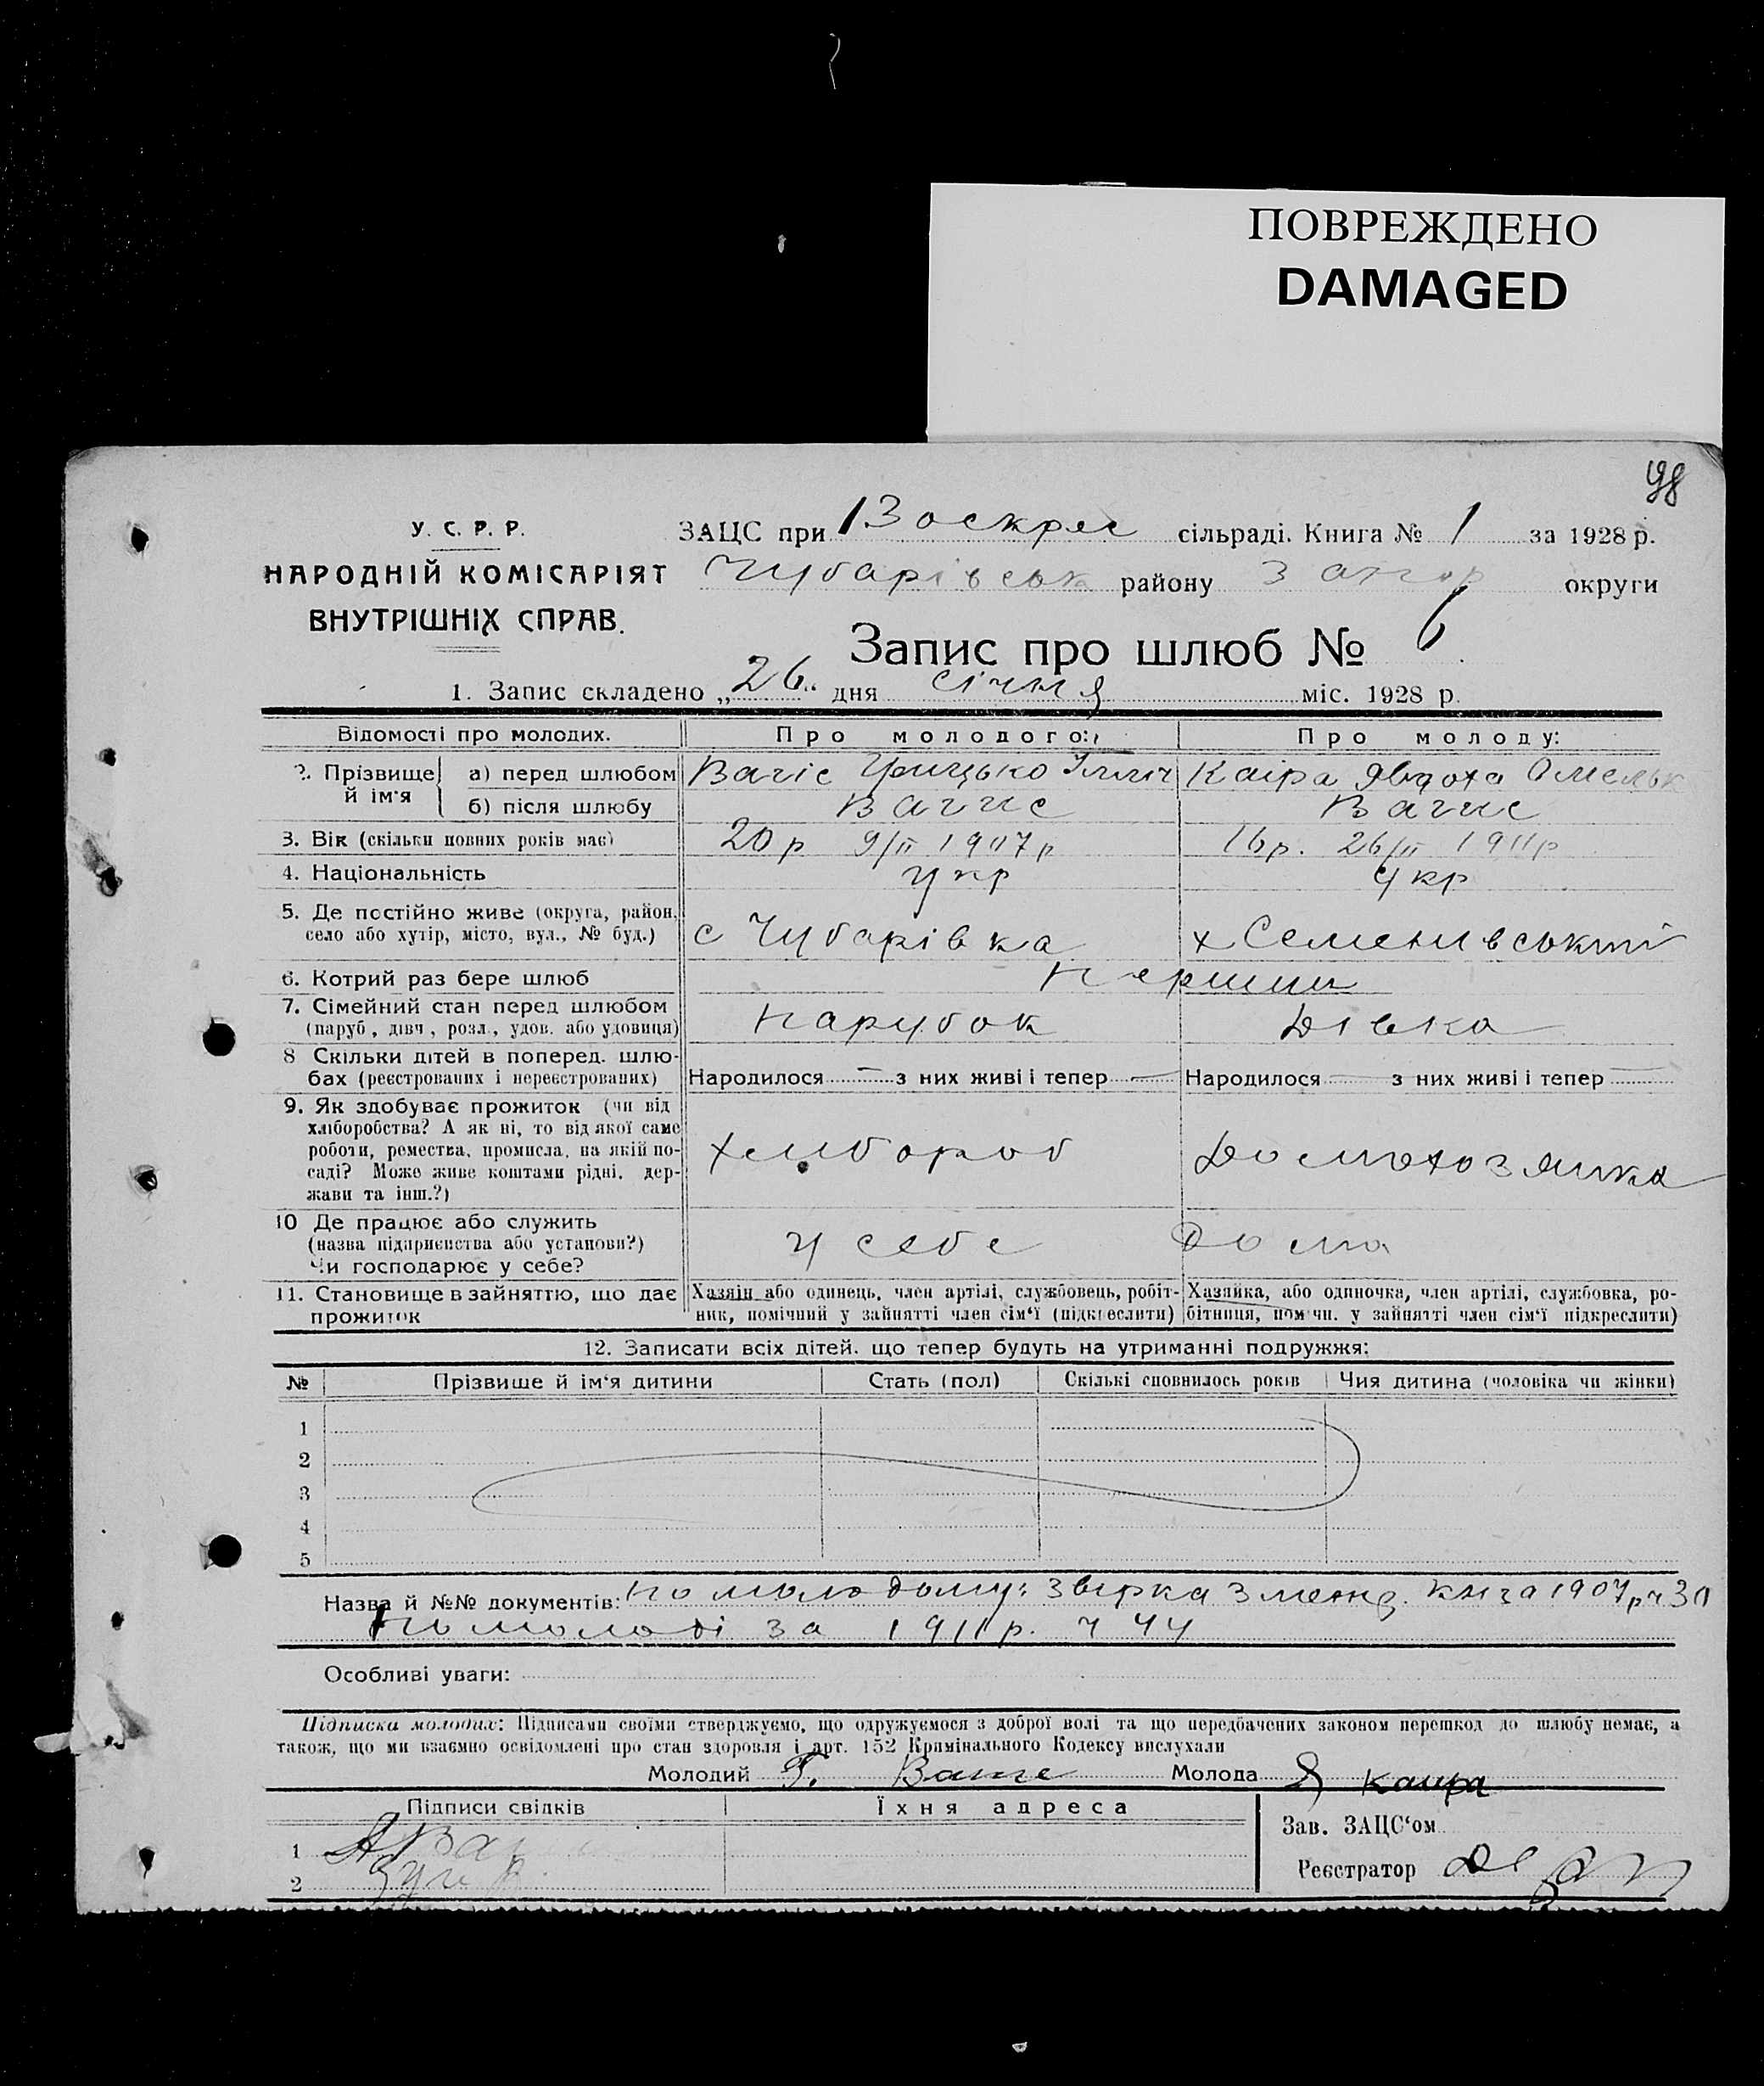 ПОВРЕЖДЕНО
DAMAGED
98
У. С. Р. Р.
НАРОДНІЙ КОМІСАРІЯТ
ВНУТРІШНІХ СПРАВ.
ЗАЦС при 1 Воскрес сільраді. Книга № 1 за 1928 р.
Чубарівськ району Запор округи
Запис про шлюб № 6
1. Запис складено „26“ дня січня міс. 1928 р.
Відомості про молодих. Про молодого: Про молоду:
2. Прізвище й ім'я а) перед шлюбом Вагіс Грицько Ілліч Каіра Явдоха Омельк
б) після шлюбу Вагис Вагис
3. Вік (скільки повних років має) 20 р 9/II 1907 р 16 р. 26/II 1911 р
4. Національність Укр Укр
5. Де постійно живе (округа, район, с Чубарівка х Семенівський
село або хутір, місто, вул., № буд.)
6. Котрий раз бере шлюб перший
7. Сімейний стан перед шлюбом парубок дівка
(паруб., дівч., розл., удов. або удовиця)
8 Скільки дітей в поперед. шлю-
бах (реєстрованих і нереєстрованих) Народилося — з них живі і тепер — Народилося — з них живі і тепер —
9. Як здобуває прожиток (чи від
хліборобства? А як ні, то від якої саме
роботи, ремества, промисла, на якій по- хлибороб Домохозяйка
саді? Може живе коштами рідні, дер-
жави та інш.?)
10 Де працює або служить
(назва підприємства або установи?) у себе дома
Чи господарює у себе?
11. Становище в зайняттю, що дає Хазяїн або одинець, член артілі, службовець, робіт- Хазяйка, або одиночка, член артілі, службовка, ро-
прожиток ник, помічний у зайнятті член сім'ї (підкреслити) бітниця, помічн. у зайнятті член сім'ї підкреслити)
12. Записати всіх дітей, що тепер будуть на утриманні подружжя:
№ Прізвище й ім'я дитини Стать (пол) Скількі сповнилось років Чия дитина (чоловіка чи жінки)
1
2
3
4
5
Назва й №№ документів: по молодому: звірка з метр. кн за 1907 р ч 30
по молоді за 1911 р. ч 44
Особливі уваги:
Підписка молодих: Підписами своїми стверджуємо, що одружуємося з доброї волі та що передбачених законом перешкод до шлюбу немає, а
також, що ми взаємно освідомлені про стан здоровля і арт. 152 Кримінального Кодексу вислухали
Молодий Г. Вагис Молода Я Каира
Підписи свідків Їхня адреса
Зав. ЗАЦС'ом
1
Реєстратор
2